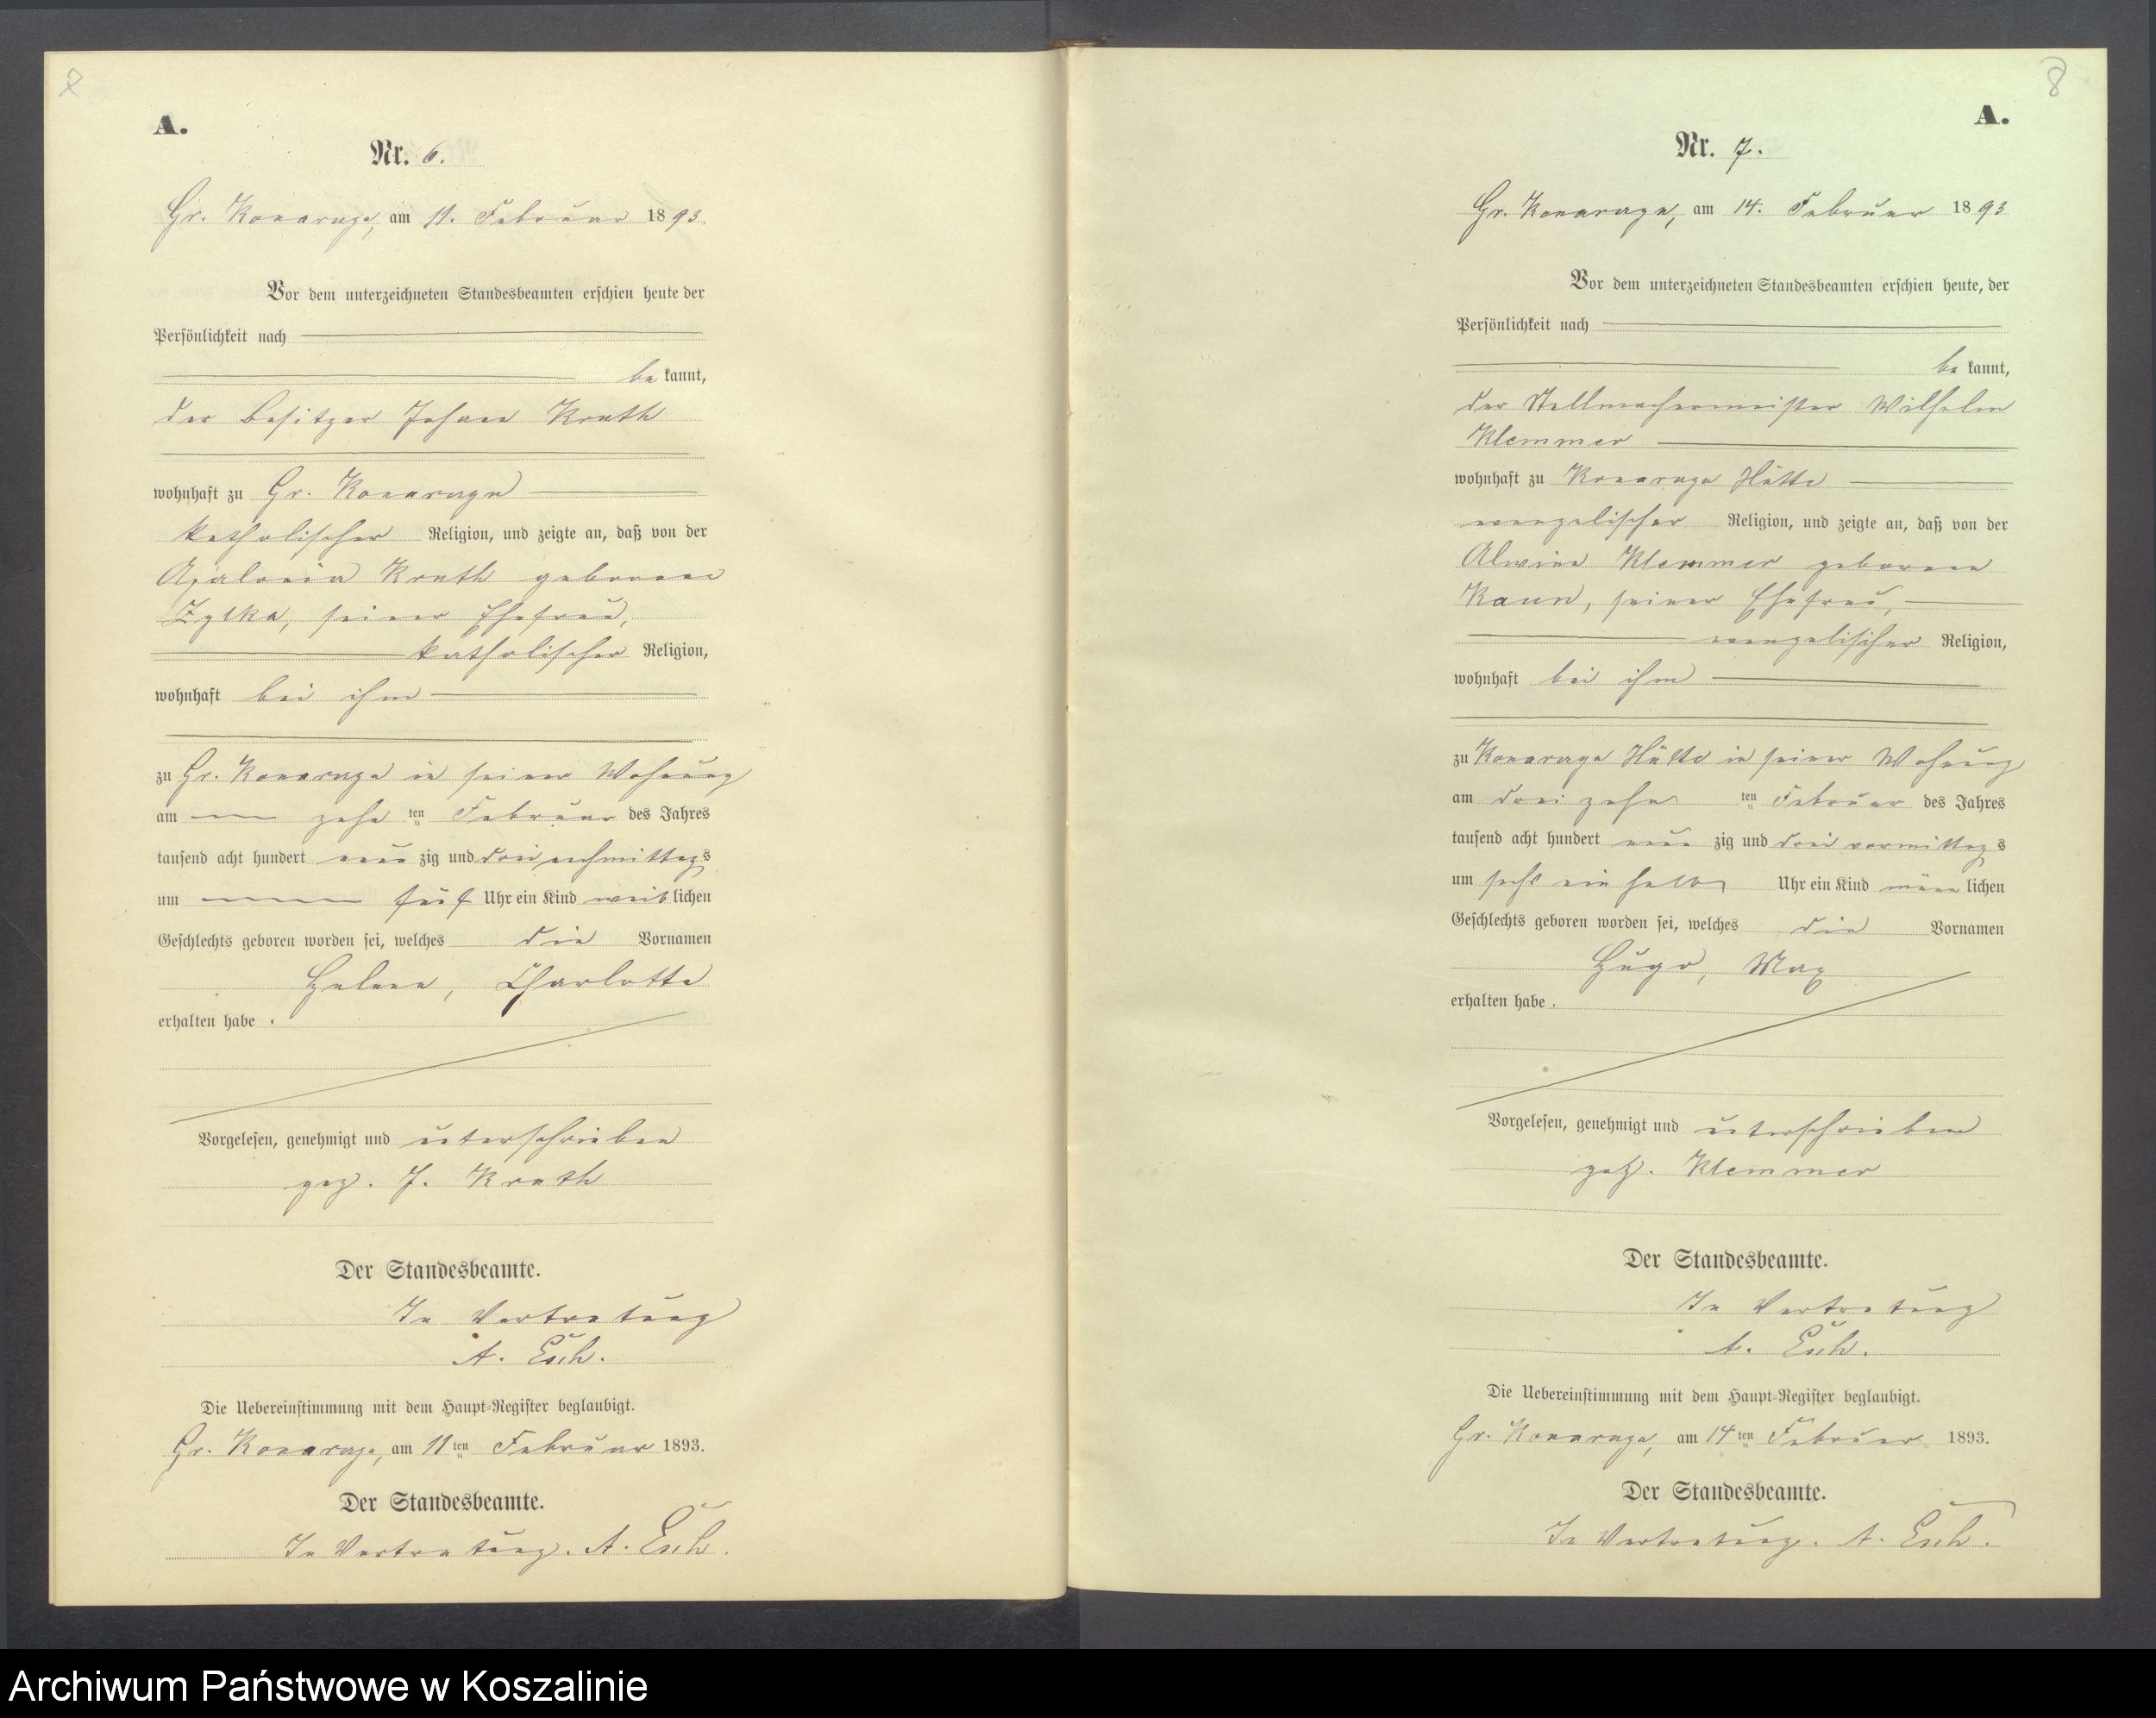 8
A.
Nr. 6.
Gr. Konarzyn, am 11. Februar 1893.
Vor dem unterzeichneten Standesbeamten erschien heute der
Persönlichkeit nach
be kannt,
der Besitzer Johann Knuth
wohnhaft zu Gr. Konarzyn
katholischer Religion, und zeigte an, daß von der
Knuth geborenen
seiner Ehefrau,
katholischer Religion,
wohnhaft bei ihm
zu Gr. Konarzyn in seiner Wohnung
am zehn ten Februar des Jahres
tausend acht hundert neun zig und drei nachmittags
um fünf Uhr ein Kind weib lichen
Geschlechts geboren worden sei, welches die Vornamen
Helene, Charlotte
erhalten habe.
Vorgelesen, genehmigt und unterschrieben
gez. J. Knuth
Der Standesbeamte.
In Vertretung
A.
Die Uebereinstimmung mit dem Haupt-Register beglaubigt.
Gr. Konarzyn, am 11 ten Februar 1893.
Der Standesbeamte.
In Vertretung. A.
8
A.
Nr. 7.
Gr. Konarzyn, am 14. Februar 1893
Vor dem unterzeichneten Standesbeamten erschien heute, der
Persönlichkeit nach
be kannt,
der Stellmachermeister Wilhelm
Klemmer
wohnhaft zu Konarzyn Hütte
evangelischer Religion, und zeigte an, daß von der
Alwine Klemmer geborenen
Kaun, seiner Ehefrau,
evangelischer Religion,
wohnhaft bei ihm
zu Konarzyn Hütte in seiner Wohnung
am drei zehn ten Februar des Jahres
tausend acht hundert neun zig und drei vormittags
um sechs ein halb Uhr ein Kind männ lichen
Geschlechts geboren worden sei, welches die Vornamen
Hugo, Max
erhalten habe.
Vorgelesen, genehmigt und unterschrieben
gez. Klemmer
Der Standesbeamte.
In Vertretung
A.
Die Uebereinstimmung mit dem Haupt-Register beglaubigt.
Gr. Konarzyn, am 14 ten Februar 1893.
Der Standesbeamte.
In Vertretung. A.
Archiwum Państwowe w Koszalinie